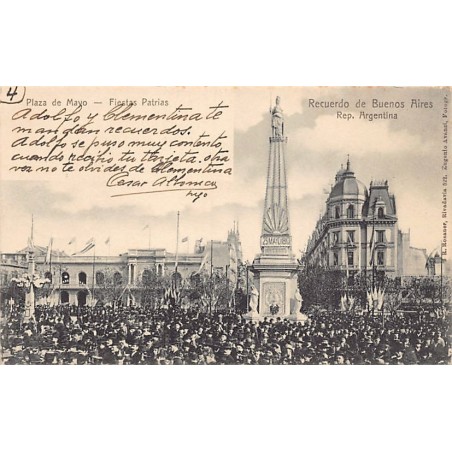 4
Plaza de Mayo — Fiestas Patrias
Recuerdo de Buenos Aires
Rep. Argentina
Adolfo y Clementina te
mandan recuerdos.
Adolfo se puso muy contento
cuando recibió tu tarjeta, otra
vez no te olvides de Clementina
Cesar
25 MAYO 1810
R. Rosauer, Rivadavia 571. Eugenio Avanzi, Fotogr.